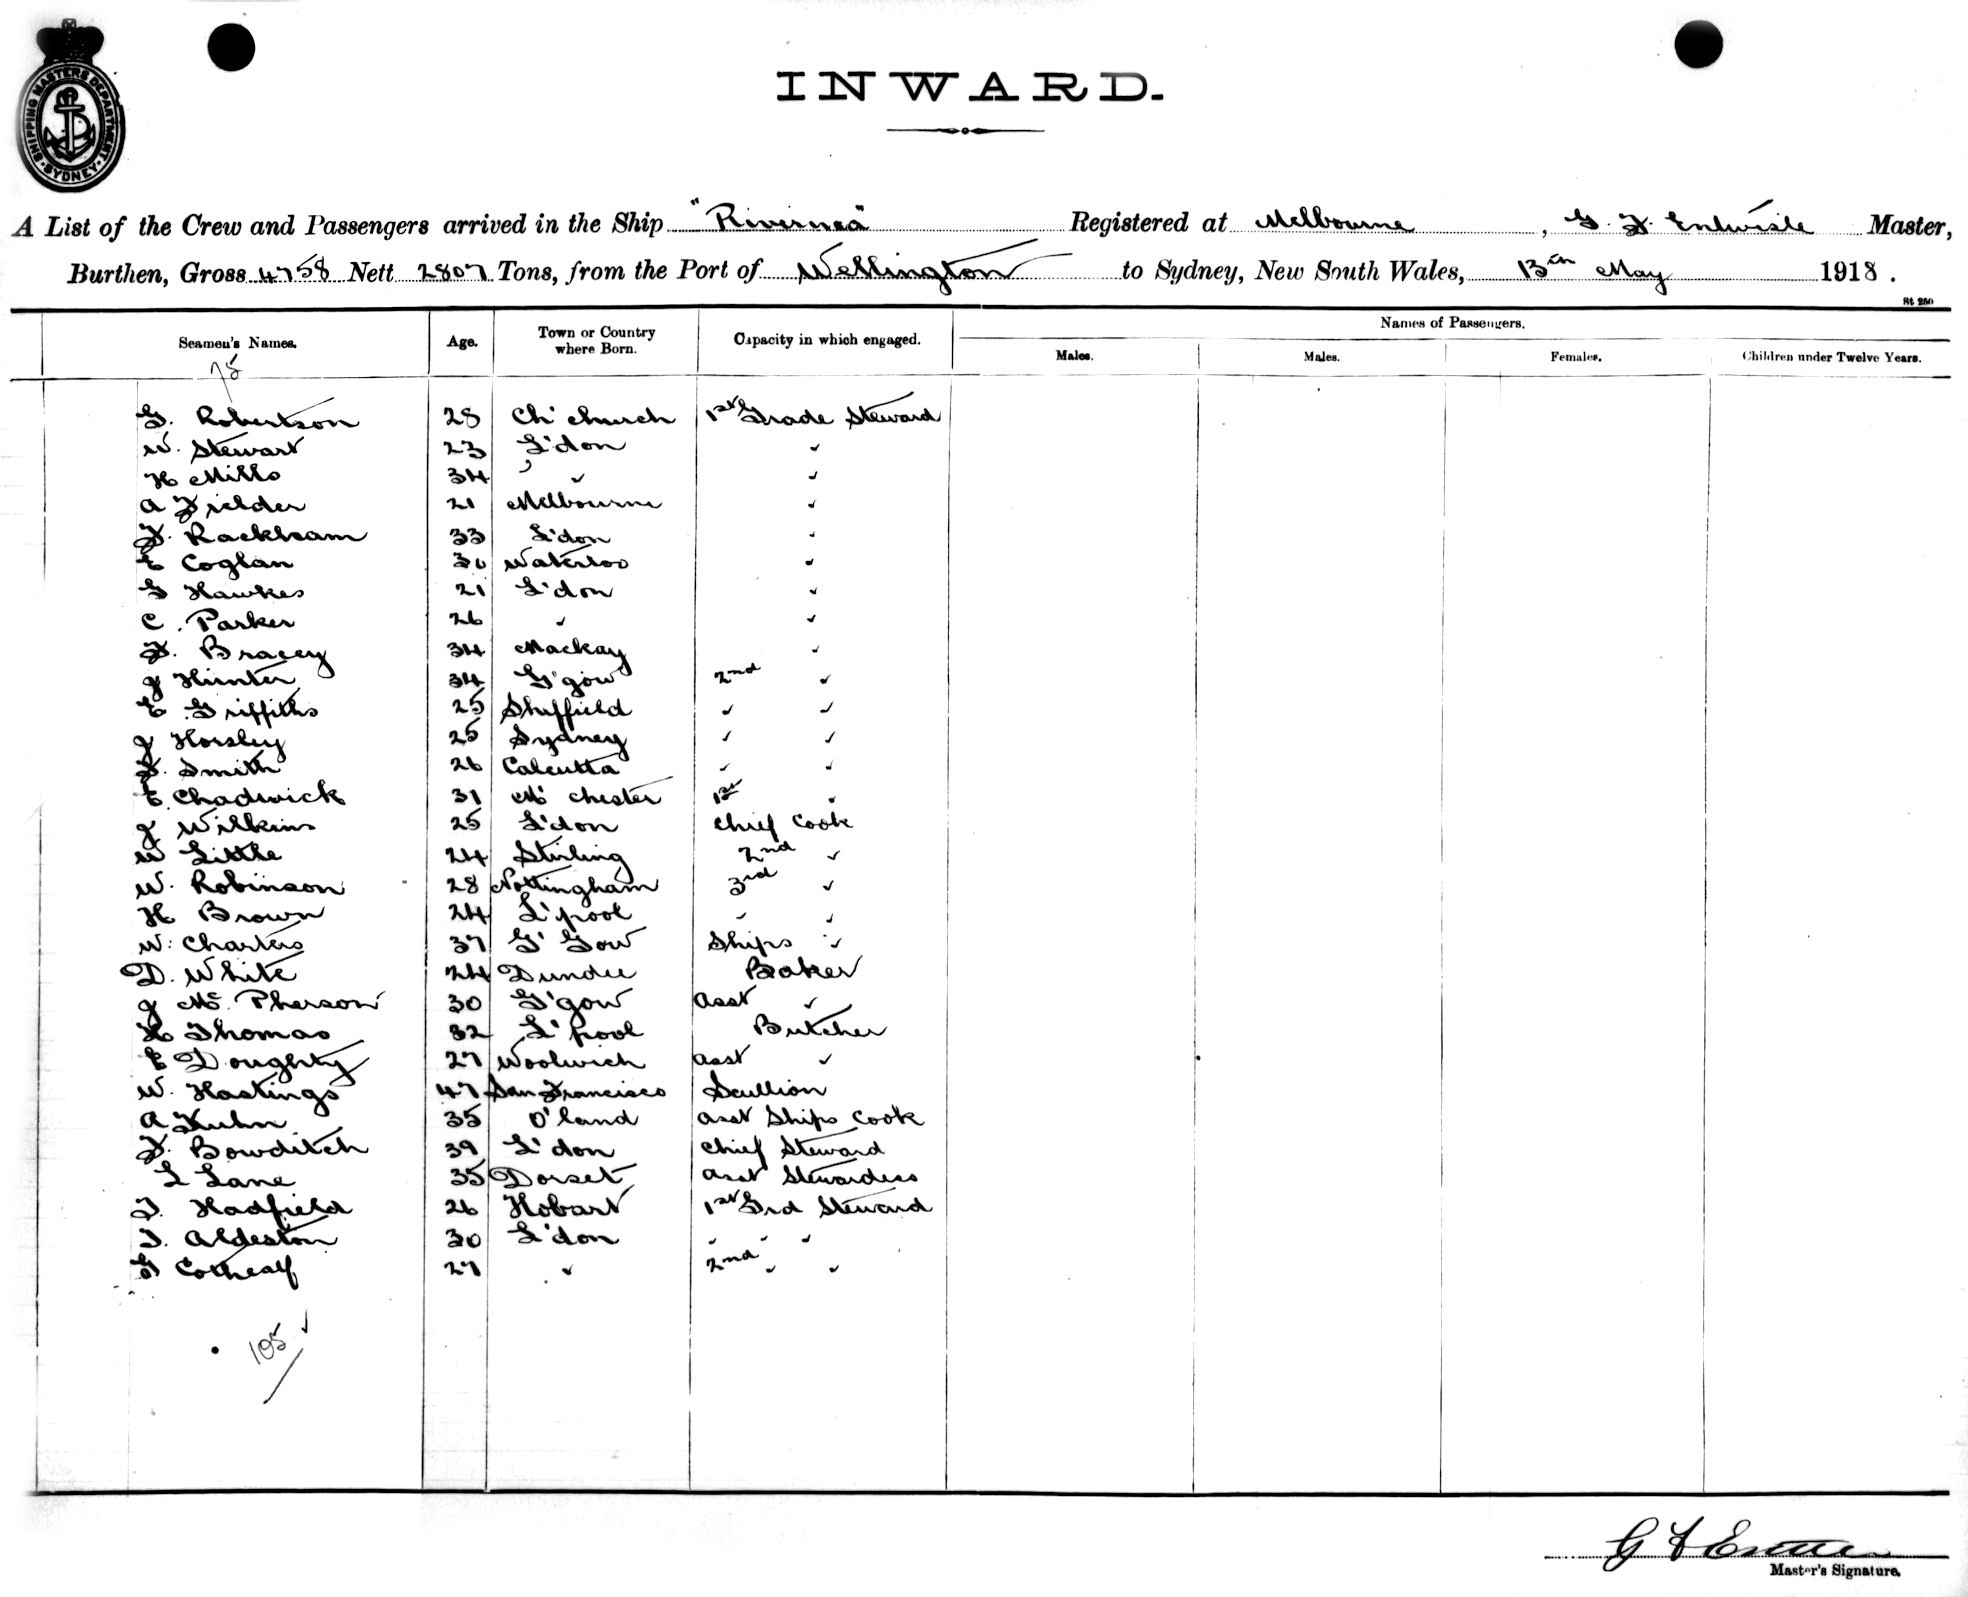 SHIPPING MASTERS DEPARTMENT SYDNEY
INWARD.
A List of the Crew and Passengers arrived in the Ship "Riverina" Registered at Melbourne, G. F. Entwisle Master,
Burthen, Gross 4758 Nett 2807 Tons, from the Port of Wellington to Sydney, New South Wales, 13th May 1918.
St 250
Seamen's Names. Age. Town or Country where Born. Capacity in which engaged. Names of Passengers.
Males. Males. Females. Children under Twelve Years.
75
G. Robertson 28 Ch'church 1st Grade Steward
W. Stewart 23 L'don "
H Mills 34 " "
A Fielder 21 Melbourne "
F. Rackham 33 L'don "
E Coglan 30 Waterloo "
G Hawkes 21 L'don "
C. Parker 26 " "
F. Bracey 34 Mackay "
J Hunter 34 G'gow 2nd "
E Griffiths 25 Sheffield " "
J Horsley 25 Sydney " "
F. Smith 26 Calcutta " "
E. Chadwick 31 M'chester 1st "
J Wilkins 25 L'don Chief Cook
W Little 24 Stirling 2nd "
W. Robinson 28 Nottingham 3rd "
H Brown 24 L'pool " "
W. Charters 37 G'Gow Ships "
D. White 24 Dundee Baker
J McPherson 30 G'gow Asst "
H Thomas 32 L'pool Butcher
E Doughty 27 Woolwich Asst "
W. Hastings 47 San Francisco Scullion
A Fuhn 35 O'land Asst Ships Cook
F. Bowditch 39 L'don Chief Steward
L Lane 35 Dorset Asst Stewardess
T. Hadfield 26 Hobart 1st Grd Steward
T. Aldeston 30 L'don " " "
G Cotheay 27 " 2nd " "
105
G F Entwisle
Master's Signature.